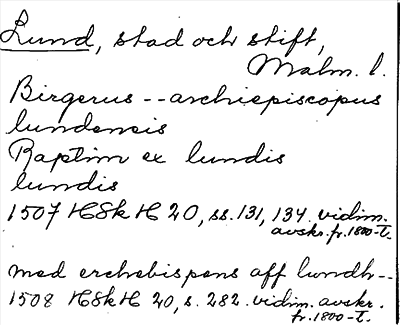 Lund, stad och stift,
Malm. l.
Birgerus -- archiepiscopus
lundensis
Raptim ex lundis
lundis
1507 HSkH 20, ss. 131, 134. vidim.
avskr. fr. 1800-t.
med erchebispens aff lundh--
1508 HSkH 20, s. 282. vidim. avskr.
fr. 1800-t.